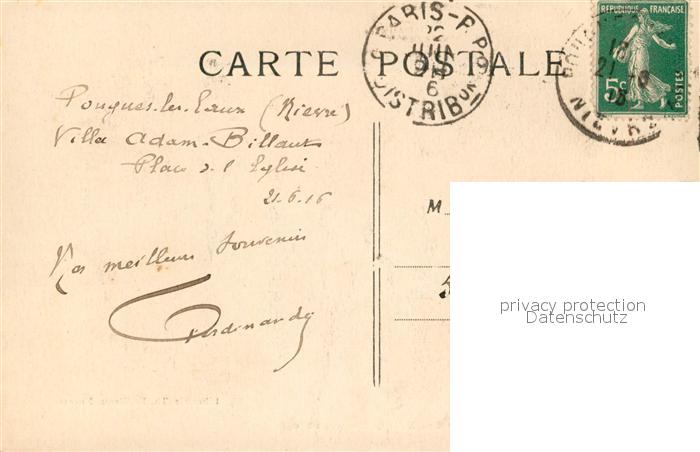 CARTE POSTALE
PARIS-R.P.
22
JUIN
6
DISTRIBON
RÉPUBLIQUE FRANÇAISE
5c
POSTES
18
21 -6
16
NIEVRE
Pougues-les-Eaux (Nièvre)
Villa Adam-Billaut
Place de l'Eglise
21.6.16
Nos meilleurs souvenirs
M
privacy protection
Datenschutz